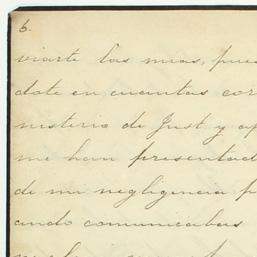 6.
viarte las mias, pues
dote en cuantas cor
nisterio de Just y ap
me han presentad
de mi negligencia p
ando comunicabas